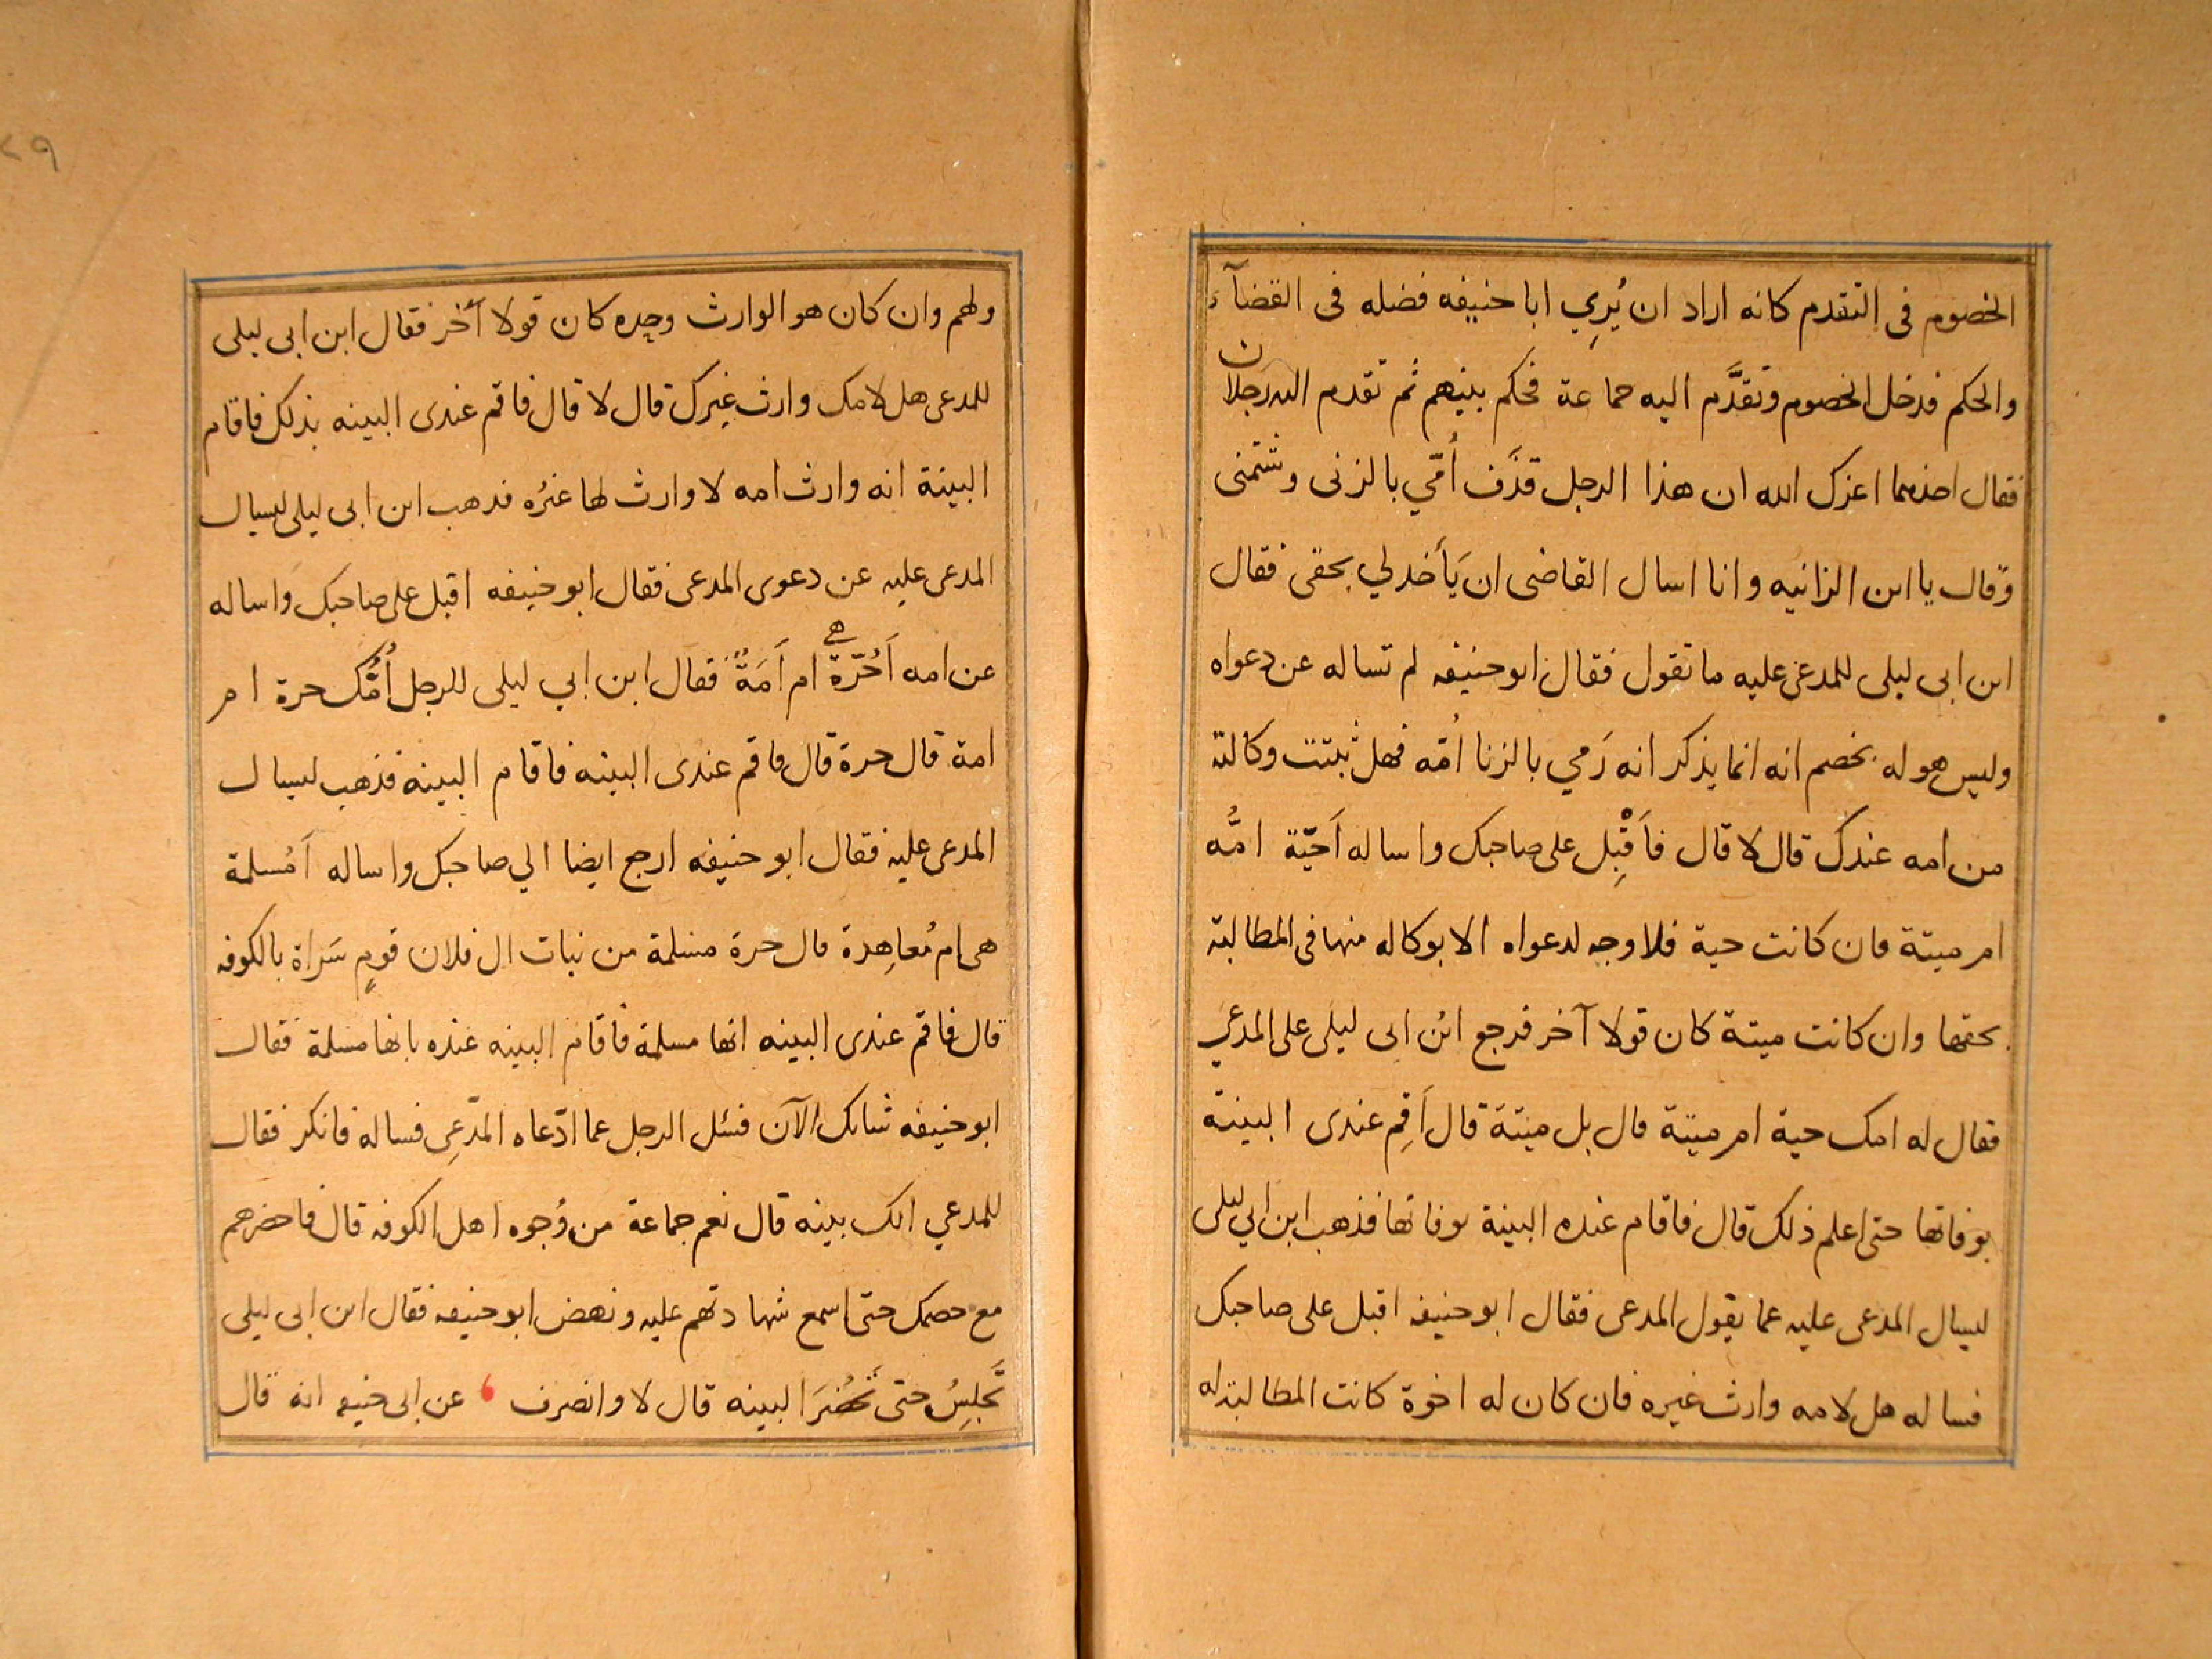 الخصوم فى التقدم كانه اراد ان يُرِي ابا حنيفه فضله فى القضآء
والحكم فدخل الخصوم وتقدَّم اليه جماعة فحكم بينهم ثم تقدم اليه رجلان
فقال احدهما اعزك الله ان هذا الرجل قذَف أُمّي بالزنى وشتمنى
وقال يا ابن الزانيه وانا اسال القاضى ان يَأخد لي بحقى فقال
ابن ابى ليلى للمدعى عليه ما تقول فقال ابو حنيفه لم تساله عن دعواه
وليس هو له بخصم انه انما يذكر انه رَمي بالزنا اُمّه فهل ثبتت وكالته
من امه عندك قال لا قال فاَقْبِل على صاحبك واساله اَحيّة امُّه
ام ميتة فان كانت حية فلا وجه لدعواه الا بوكاله منها فى المطالبة
بحقها وان كانت ميتة كان قولا آخر فرجع ابن ابى ليلى على المدعي
فقال له امك حية ام ميتة قال بل ميتة قال اَقِم عندى البينة
بوفاتها حتى اعلم ذلك قال فاقام عنده البينة بوفاتها فذهب ابن ابي ليلى
ليسال المدعى عليه عما يقول المدعى فقال ابو حنيفه اقبل على صاحبك
فساله هل لامه وارث غيره فان كان له اخوة كانت المطالبة له
ولهم وان كان هو الوارث وحده كان قولا آخر فقال ابن ابى ليلى
للمدعى هل لامك وارث غيرك قال لا قال فاقم عندى البينه بذلك فاقام
البينة انه وارث امه لا وارث لها غيرُه فدهب ابن ابى ليلى ليسال
المدعى عليه عن دعوى المدعى فقال ابو حنيفه اقبل على صاحبك واساله
عن امه اَحُرّة هي ام اَمَةٌ فقال ابن ابي ليلى للرجل اُمُّك حرة ام
امة قال حرة قال فاقم عندى البينه فاقام البينة فذهب ليسال
المدعى عليه فقال ابو حنيفه ارجع ايضا الي صاحبك واساله اَمُسلمة
هى ام مُعاهِدة قال حرة مسلمة من بنات ال فلان قومٍ سَراة بالكوفه
قال فاقم عندى البينه انها مسلمة فاقام البينه عنده بانها مسلمة فقال
ابو حنيفه شانك الآن فسئل الرجل عما ادّعاه المدّعِى فساله فانكر فقال
للمدعي الك بينه قال نعم جماعة من وُجوه اهل الكوفه قال فاحضرهم
مع خصمك حتى اسمع شهادتهم عليه ونهض ابو حنيفه فقال ابن ابى ليلى
تَجلِسُ حتى تَحْضُرَ البينه قال لا وانصرف ، عن ابى حنيفه انه قال
٢٩